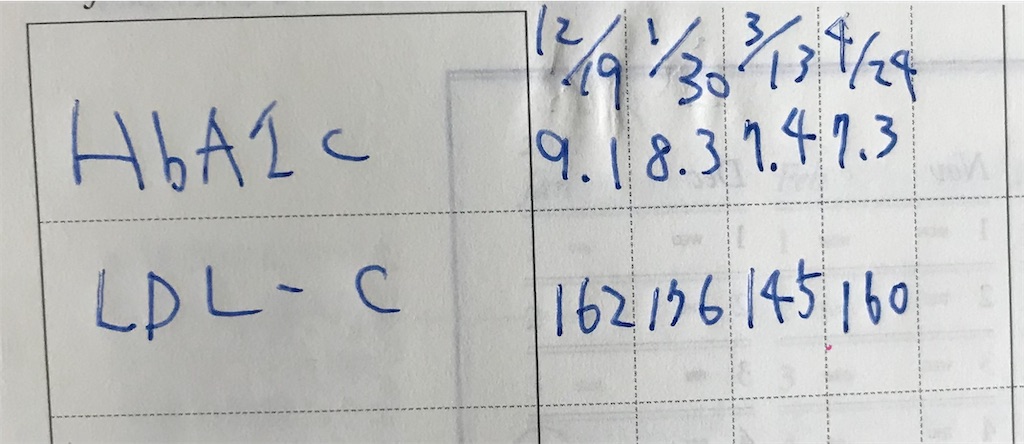 12/19 1/30 3/13 4/24
HbA1c 9.1 8.3 7.4 7.3
LDL-C 162 156 145 160